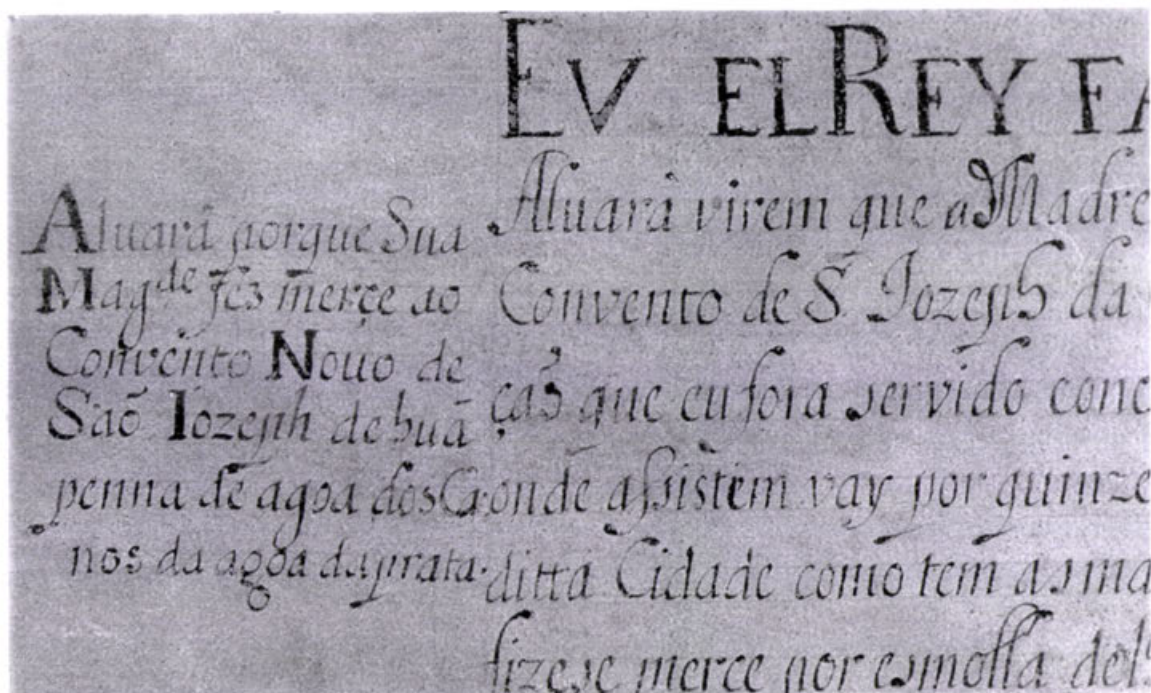 Aluará porque Sua
Mag.de fes merçe ao
Convento Nouo de
São Iozeph de huã
penna de agoa dos Ca
nos da agoa da prata.
EV EL REY FA
Aluará virem que a Madre
Convento de S. Iozeph da
ças que eu fora servido conc
onde assistem vay por quinze
ditta Cidade como tem as ma
fizese merce por esmolla de